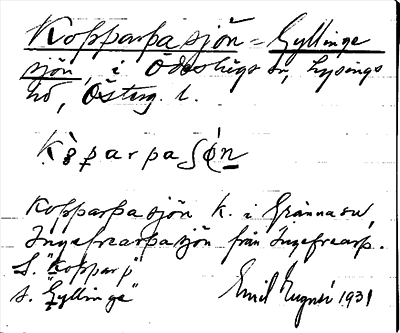 Kopparpasjön = Gyllinge
sjön, i Ödeshögs sn, Lysings
hd, Österg. l.
Kopparpasjön k. i Gränna sn,
Ingefrearpasjön från Ingefrearp.
S. "Kopparp"
s. "Gyllinge"
Emil 1931